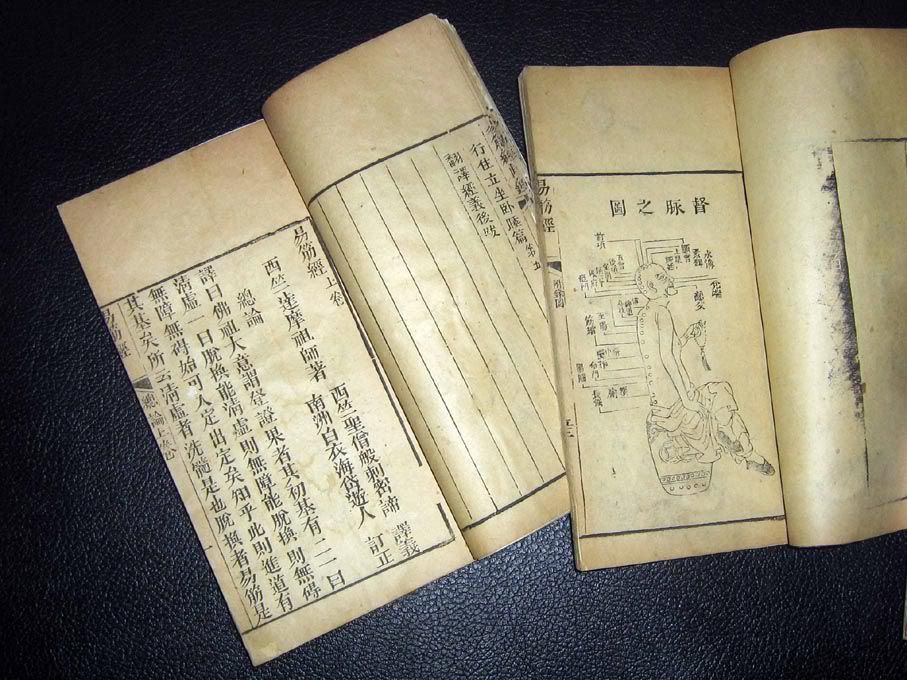 行住立坐卧睡篇第五
翻譯經義後跋
易筋經上卷
西竺達摩祖師著 西竺聖僧般剌密諦 譯義
南洲白衣海岱遊人 訂正
總論
譯曰佛祖大意謂登證果者其初基有二一曰
清虛一曰脫換能清虛則無障能脫換則無碍
無障無碍始可入定出定矣知乎此則進道有
其基矣所云清虛者洗髓是也脫換者易筋是
易筋經 總論上卷 一
督脉之圖
水溝
素髎
兌端
上星
百會
風府
長強
易筋經